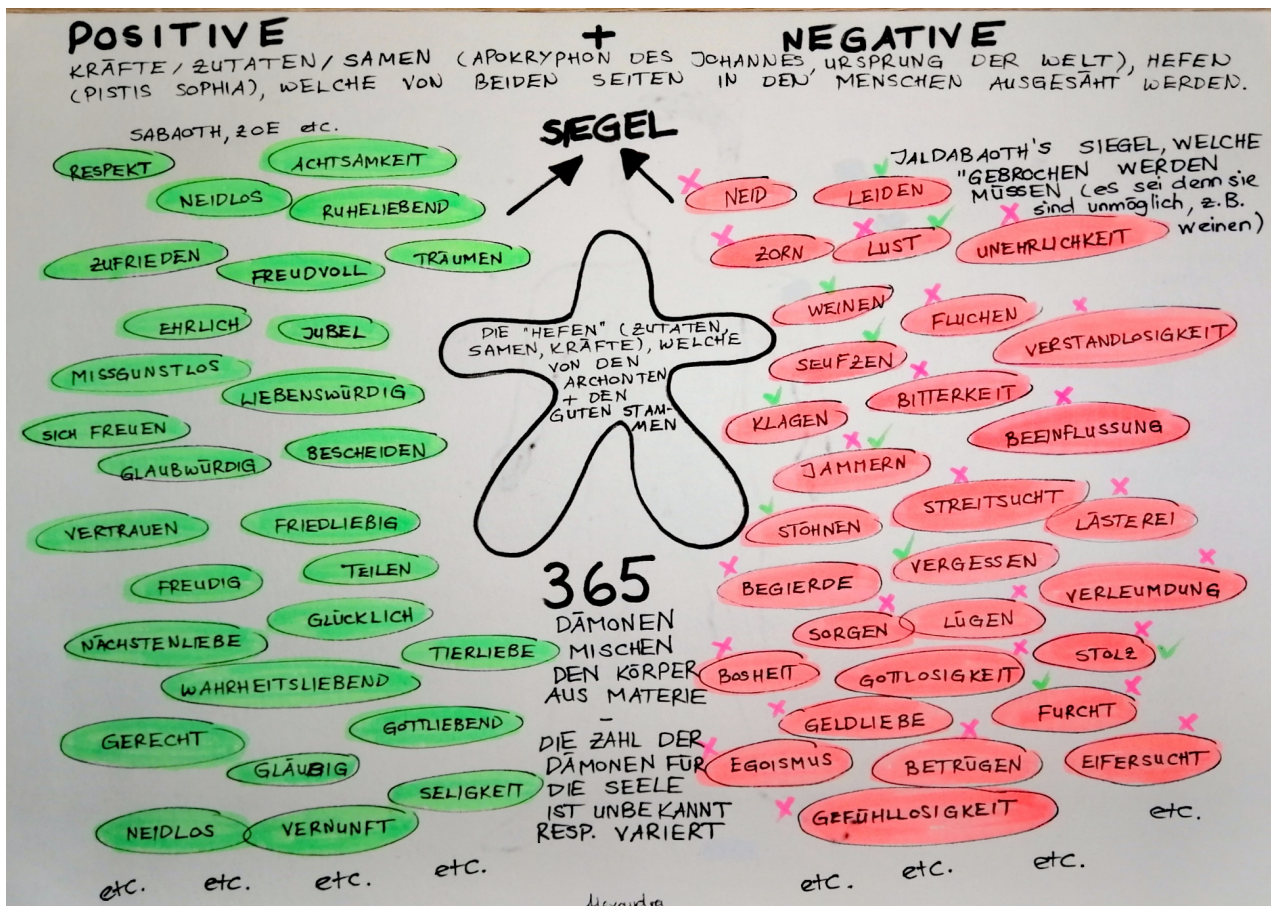 POSITIVE + NEGATIVE
KRÄFTE / ZUTATEN / SAMEN (APOKRYPHON DES JOHANNES, URSPRUNG DER WELT), HEFEN
(PISTIS SOPHIA), WELCHE VON BEIDEN SEITEN IN DEN MENSCHEN AUSGESÄHT WERDEN.
SABAOTH, ZOE etc.
RESPEKT
ACHTSAMKEIT
NEIDLOS
RUHELIEBEND
ZUFRIEDEN
FREUDVOLL
TRÄUMEN
EHRLICH
JUBEL
MISSGUNSTLOS
LIEBENSWÜRDIG
SICH FREUEN
BESCHEIDEN
GLAUBWÜRDIG
VERTRAUEN
FRIEDLIEBIG
FREUDIG
TEILEN
GLÜCKLICH
NÄCHSTENLIEBE
TIERLIEBE
WAHRHEITSLIEBEND
GOTTLIEBEND
GERECHT
GLÄUBIG
SELIGKEIT
NEIDLOS
VERNUNFT
etc.
etc.
etc.
etc.
SIEGEL
DIE "HEFEN" (ZUTATEN,
SAMEN, KRÄFTE), WELCHE
VON DEN
ARCHONTEN
+ DEN
GUTEN STAM-
MEN
365
DÄMONEN
MISCHEN
DEN KÖRPER
AUS MATERIE
–
DIE ZAHL DER
DÄMONEN FÜR
DIE SEELE
IST UNBEKANNT
RESP. VARIERT
JALDABAOTH'S SIEGEL, WELCHE
"GEBROCHEN WERDEN
MÜSSEN (es sei denn sie
sind unmöglich, z.B.
weinen)
NEID
LEIDEN
ZORN
LUST
UNEHRLICHKEIT
WEINEN
FLUCHEN
VERSTANDLOSIGKEIT
SEUFZEN
BITTERKEIT
KLAGEN
BEEINFLUSSUNG
JAMMERN
STREITSUCHT
LÄSTEREI
STÖHNEN
VERGESSEN
BEGIERDE
VERLEUMDUNG
SORGEN
LÜGEN
STOLZ
BOSHEIT
GOTTLOSIGKEIT
FURCHT
GELDLIEBE
EGOISMUS
BETRÜGEN
EIFERSUCHT
GEFÜHLLOSIGKEIT
etc.
etc.
etc.
etc.